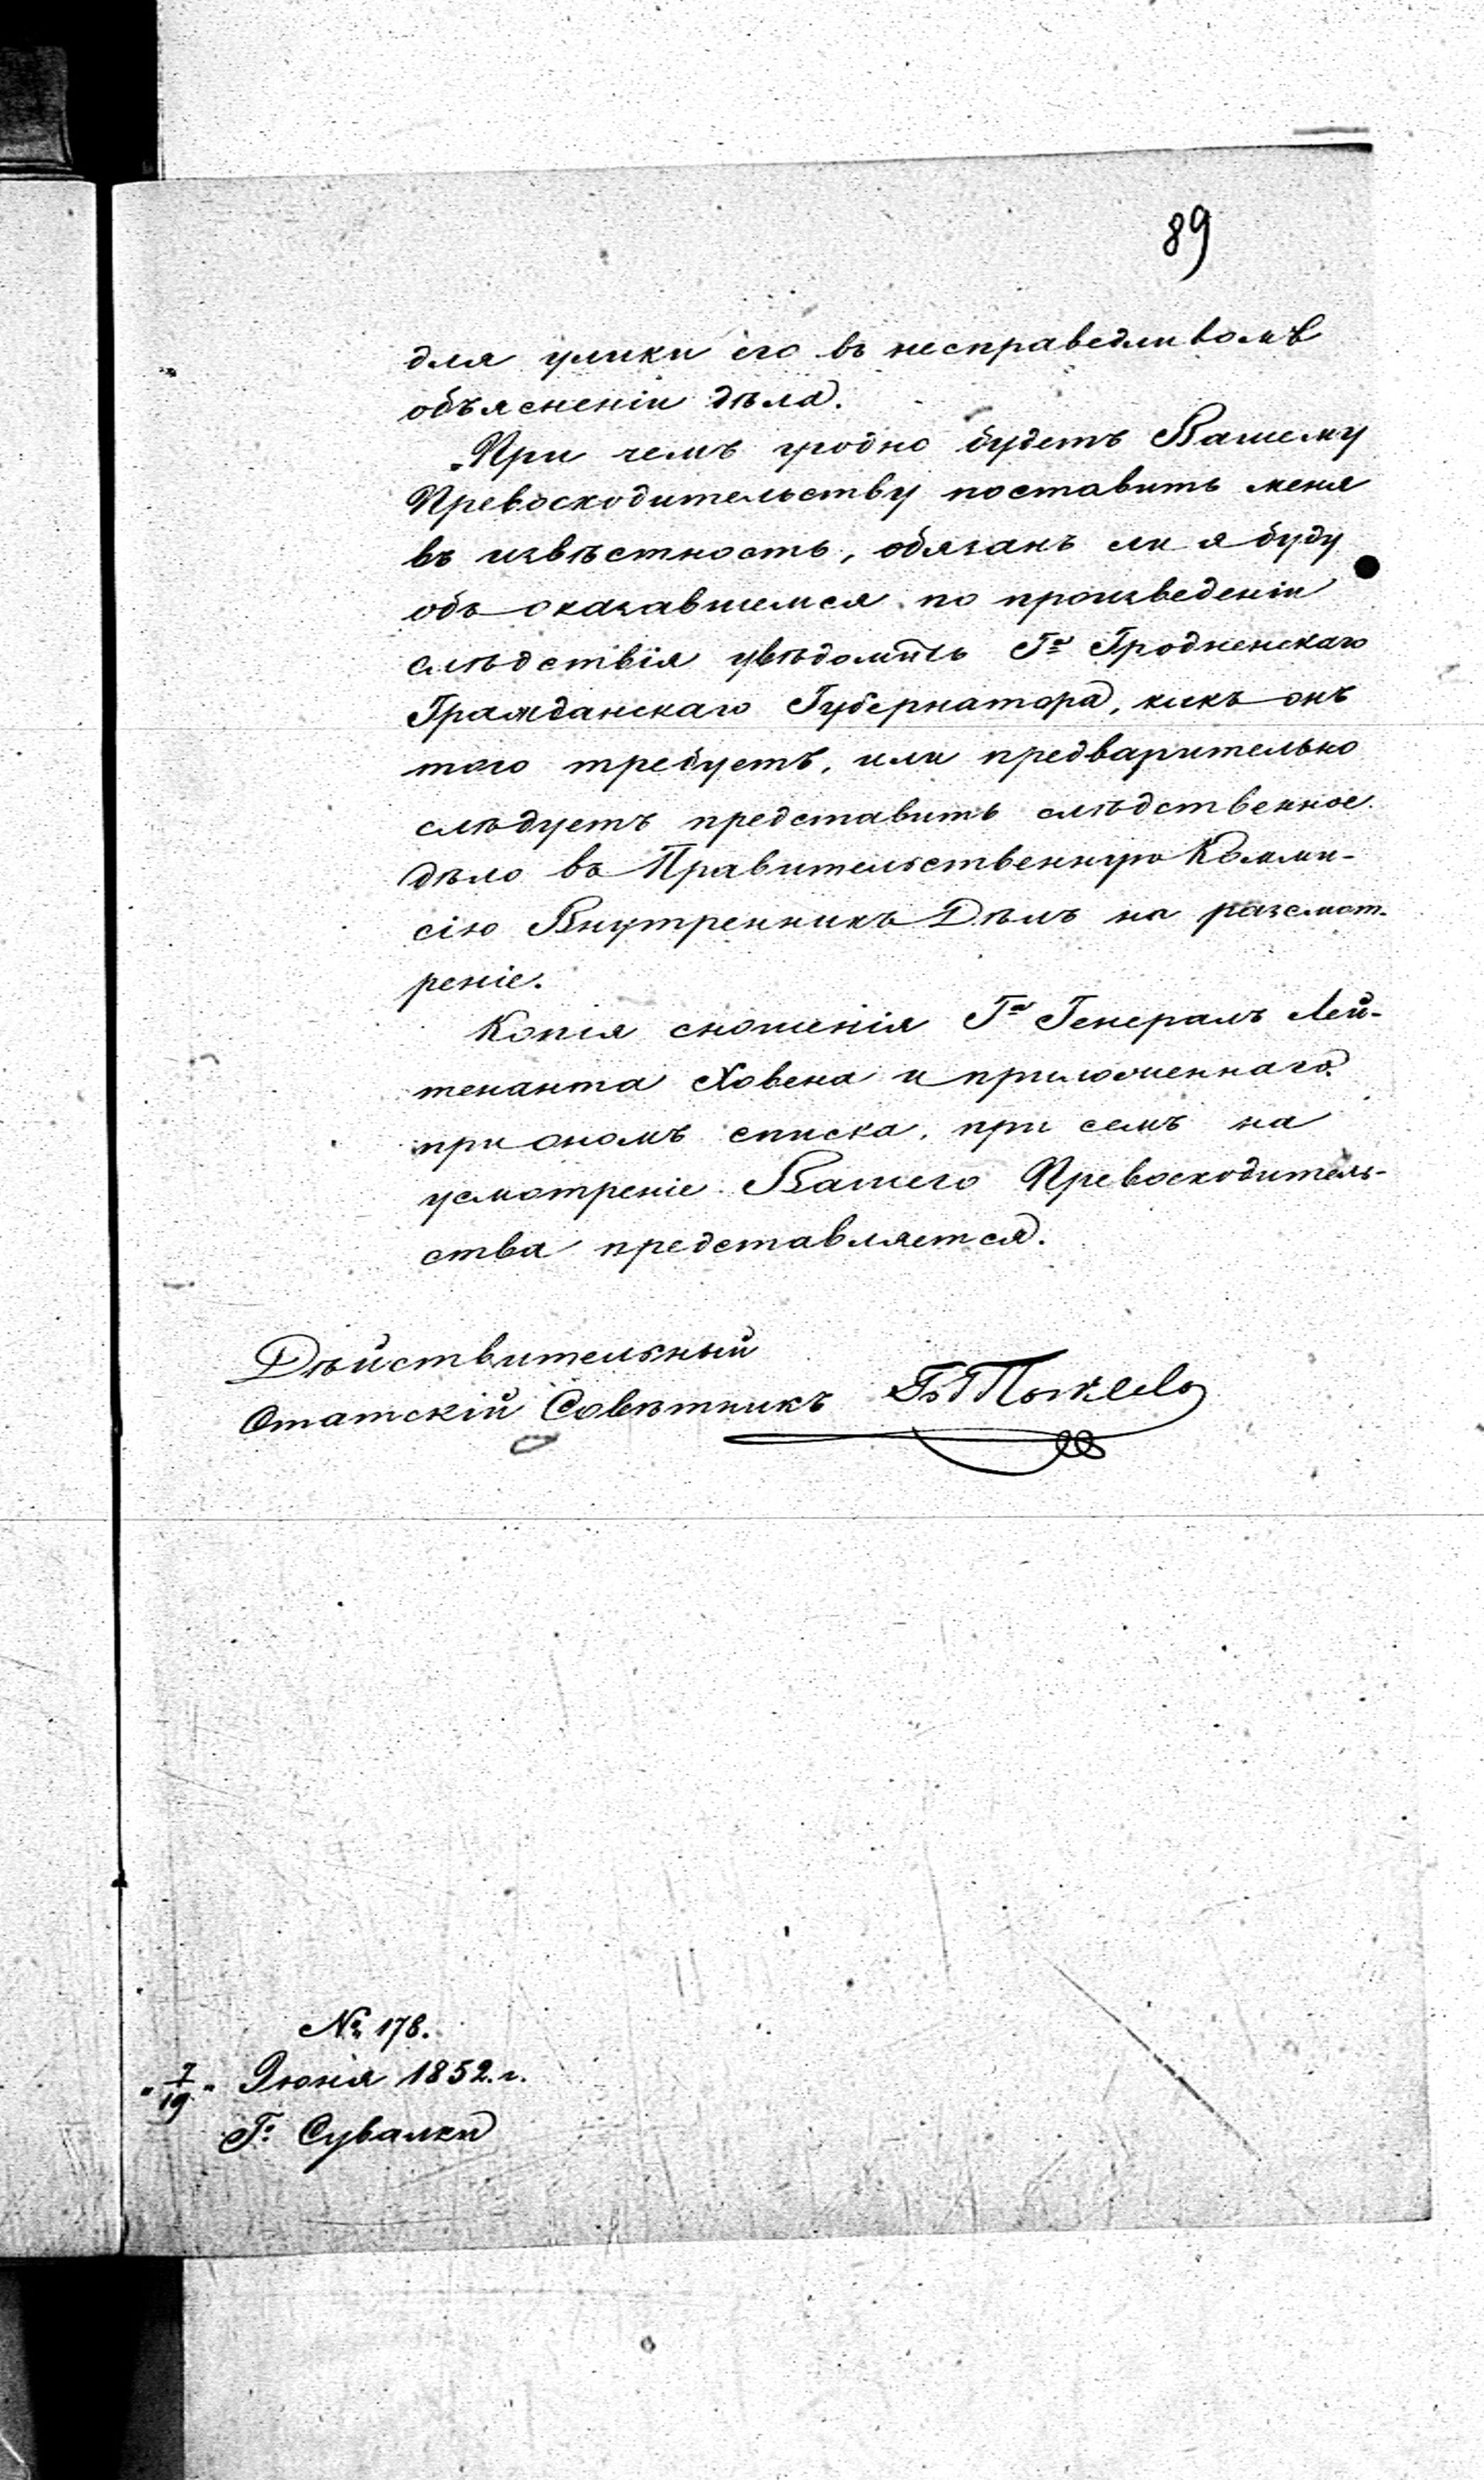 89
для улики его въ несправедливомъ
объясненіи дѣла.
При чемъ угодно будетъ Вашему
Превосходительству поставить меня
въ извѣстность, обязанъ ли я буду
объ оказавшемся по произведеніи
слѣдствія увѣдомить Г<sup>на</sup> Гродненскаго
Гражданскаго Губернатора, какъ онъ
того требуетъ, или предварительно
слѣдуетъ представить слѣдственное
дѣло въ Правительственную Комми-
сію Внутреннихъ Дѣлъ на разсмот-
реніе.
Копія сношенія Г<sup>на</sup> Генералъ Лей-
тенанта Ховена и приложеннаго
при ономъ списка, при семъ на
усмотреніе Вашего Превосходитель-
ства представляется.
Дѣйствительный
Статскій Совѣтникъ
№ 178.
"7/19" Іюня 1852 г.
Г. Сувалки